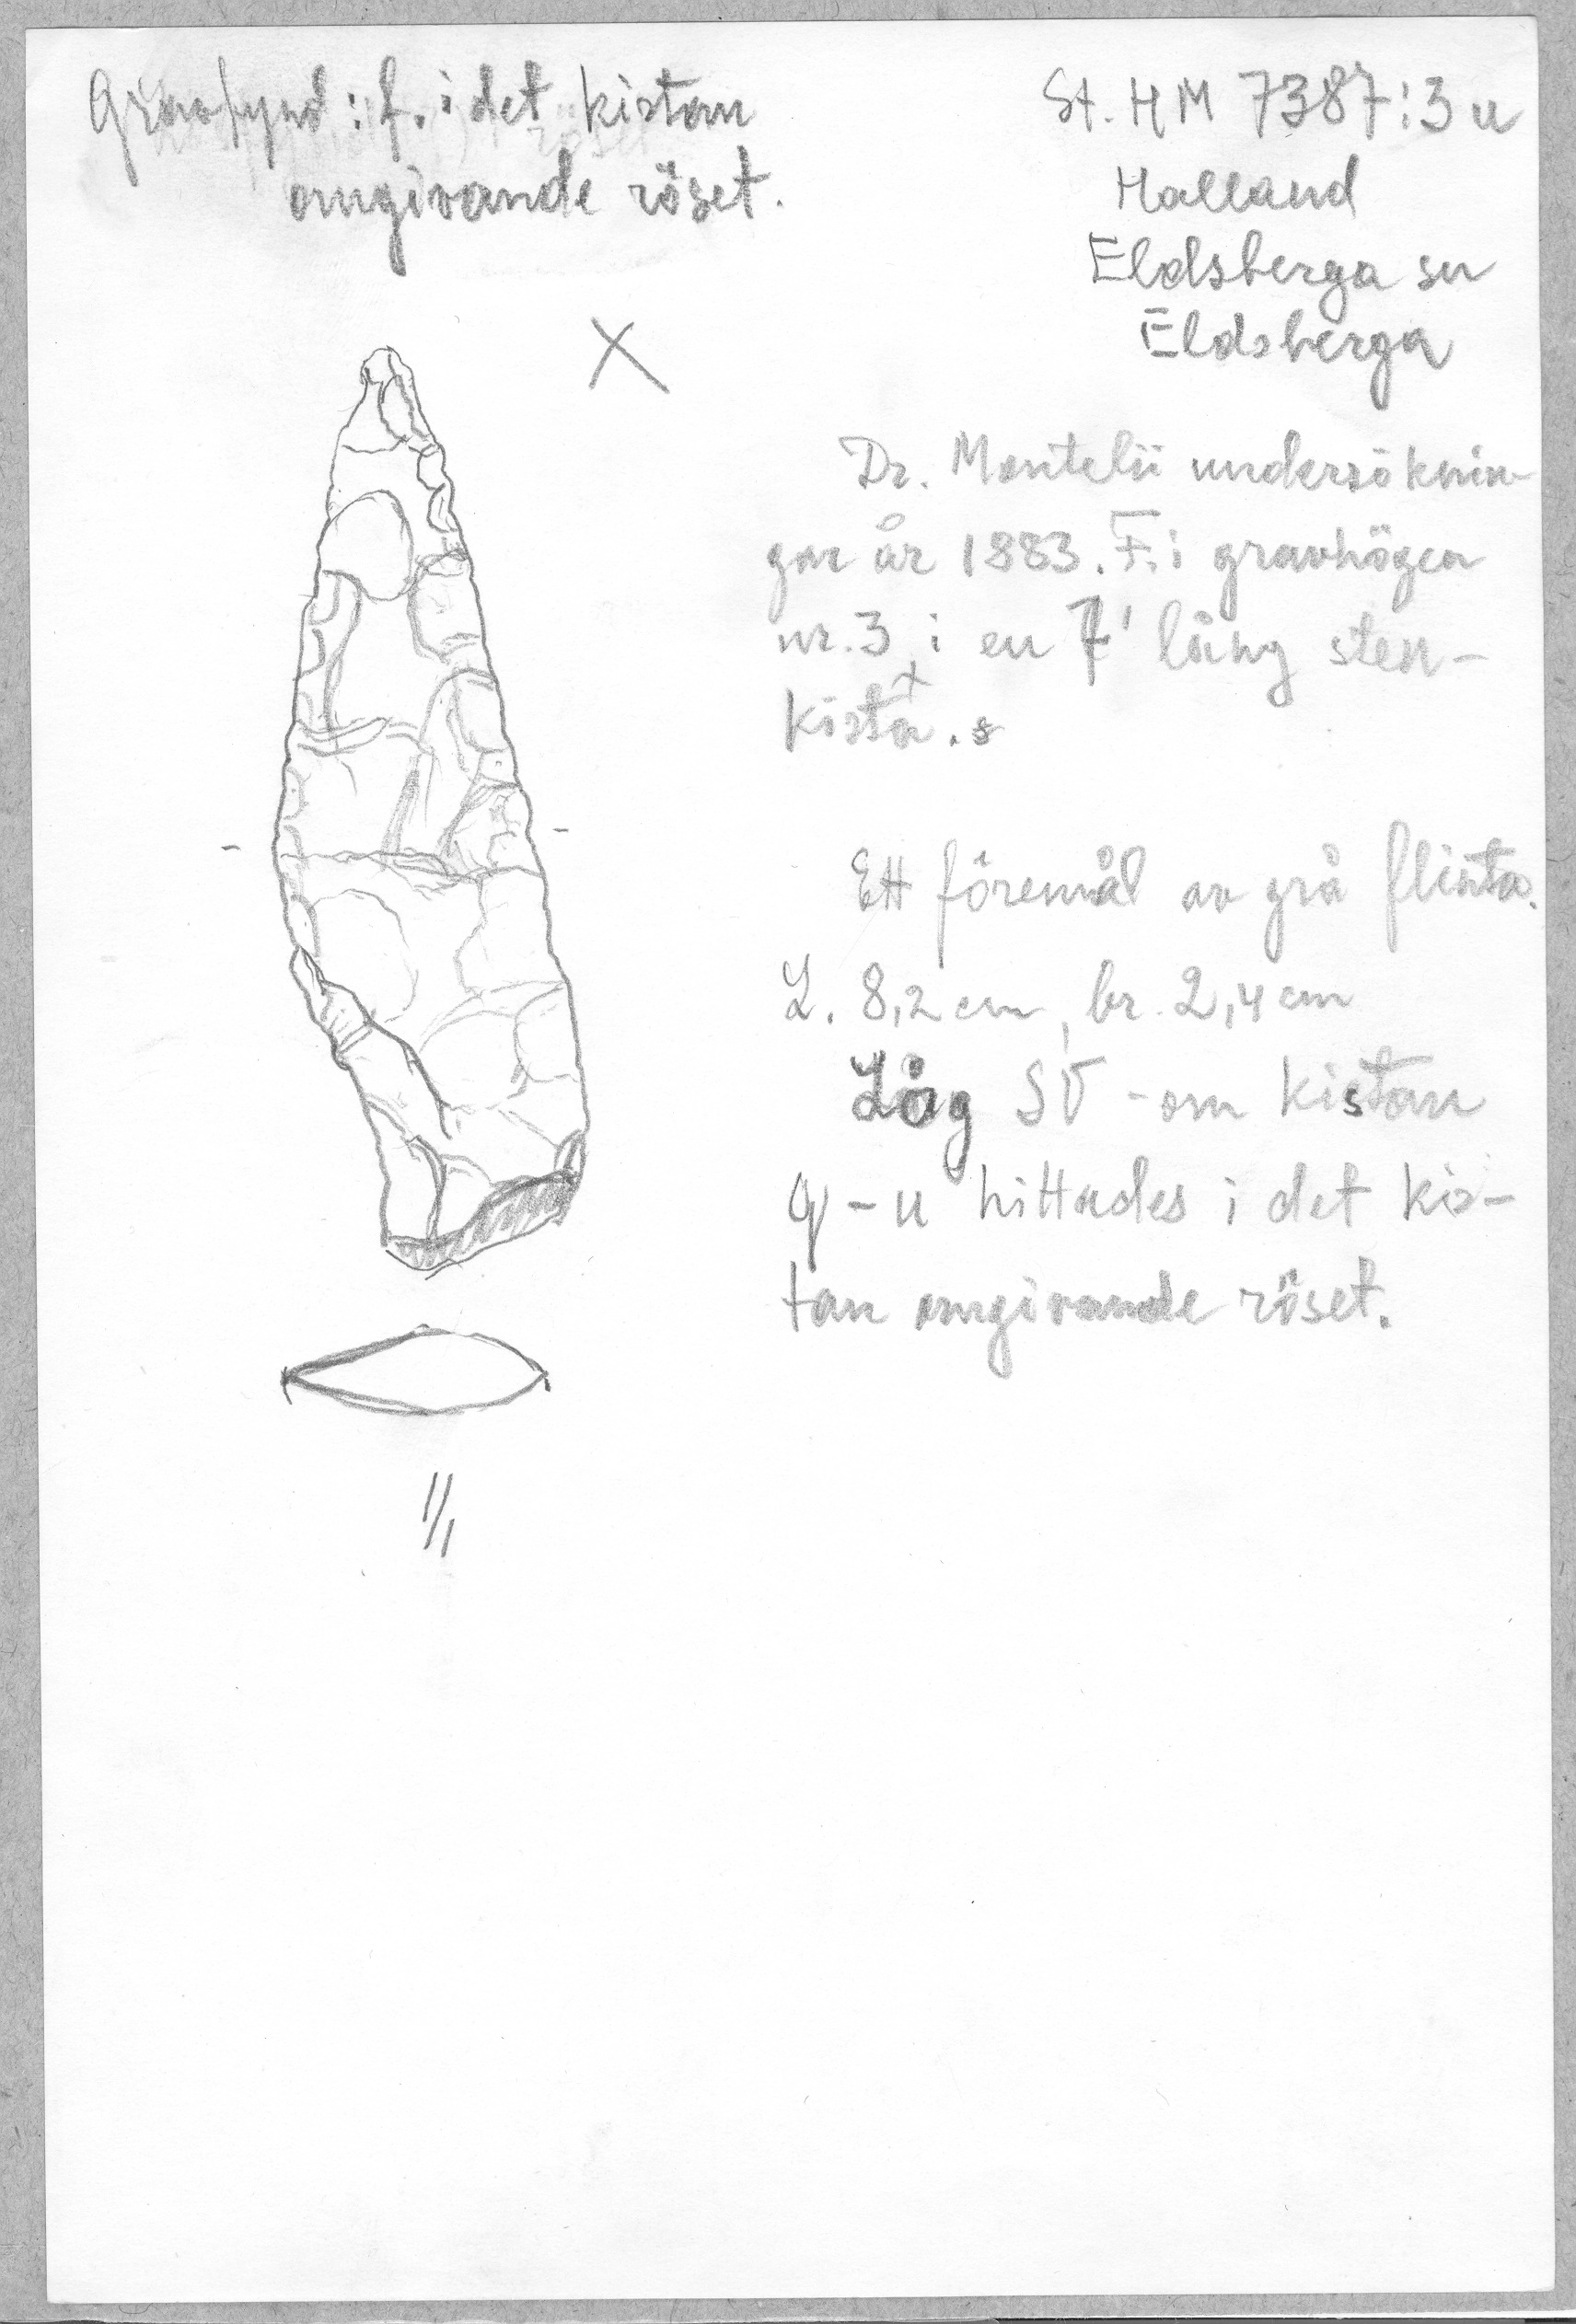 Gravfynd : f. i det kistan
omgivande röset.
St. HM 7387:3 u
Halland
Eldsberga sn
Eldsberga
X
Dr. Montelii undersöknin-
gar år 1883. F. i gravhögen
nr. 3 i en 7' lång sten-
kista x . s
Ett föremål av grå flinta.
L. 8,2 cm, br. 2,4 cm
Låg SV - om kistan
q - u hittades i det kis-
tan omgivande röset.
1/1